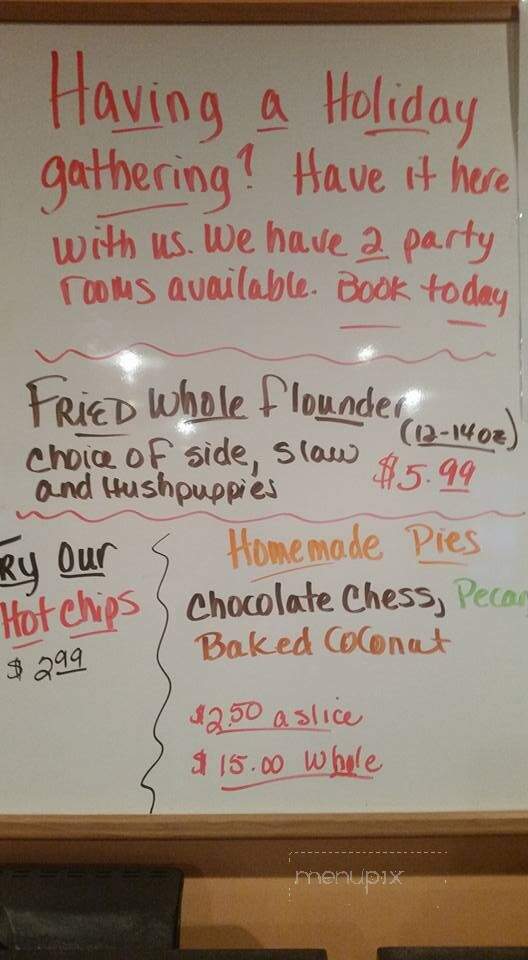 Having a Holiday
gathering? Have it here
with us. We have 2 party
rooms available. Book today
FRIED Whole flounder
(12-14oz)
choice of side, slaw
and Hushpuppies
$5.99
Try Our
Hot chips
$2.99
Homemade Pies
Chocolate Chess, Pecan
Baked Coconut
$2.50 a slice
$15.00 Whole
menupix